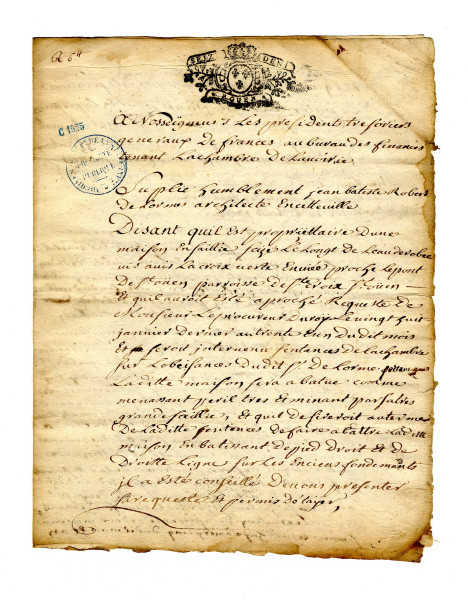 C 1595
SEIZ DEN
ROUEN
A Nosseigneurs Les presidents tresoriers
generaux De frances au bureau des finances
tenant La chambre de
Suplie humblement jean batiste Robert
de Lorme architecte En cette ville
Disant quil Est propriettaire Dune
maison En saillie size Le Long de Leau de robec
vis avis La croix verte Enviée proche Le pont
de St ouen parroisse de Ste croix St ouen
Et quil auroit Esté aproché Requeste de
Monsieur Le procureur Du roy Le vingt huit
janvier dernier au trente Et un dudit mois
Et seroit intervenu sentance de La chambre
sur Lobeisances Dudit Sr De Lorme portant que
Laditte maison sera abatue comme
menassant peril tres Eminant par sa tres
grande saillie, Et quil desireroit au terme
de Laditte sentences de faire abattre Laditte
maison En batissant de pied droit Et de
Droitte Ligne sur Les Enciens fondements
il a Esté conseillé de vous presenter
sa requeste Et permis détayer